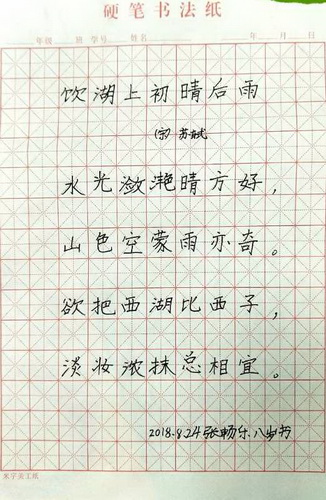 硬笔书法纸
年级 班 学号 姓名 年 月 日
饮湖上初晴后雨
(宋) 苏轼
水光潋滟晴方好，
山色空蒙雨亦奇。
欲把西湖比西子，
淡妆浓抹总相宜。
2018.8.24 张畅乐 八岁书
米字英工纸